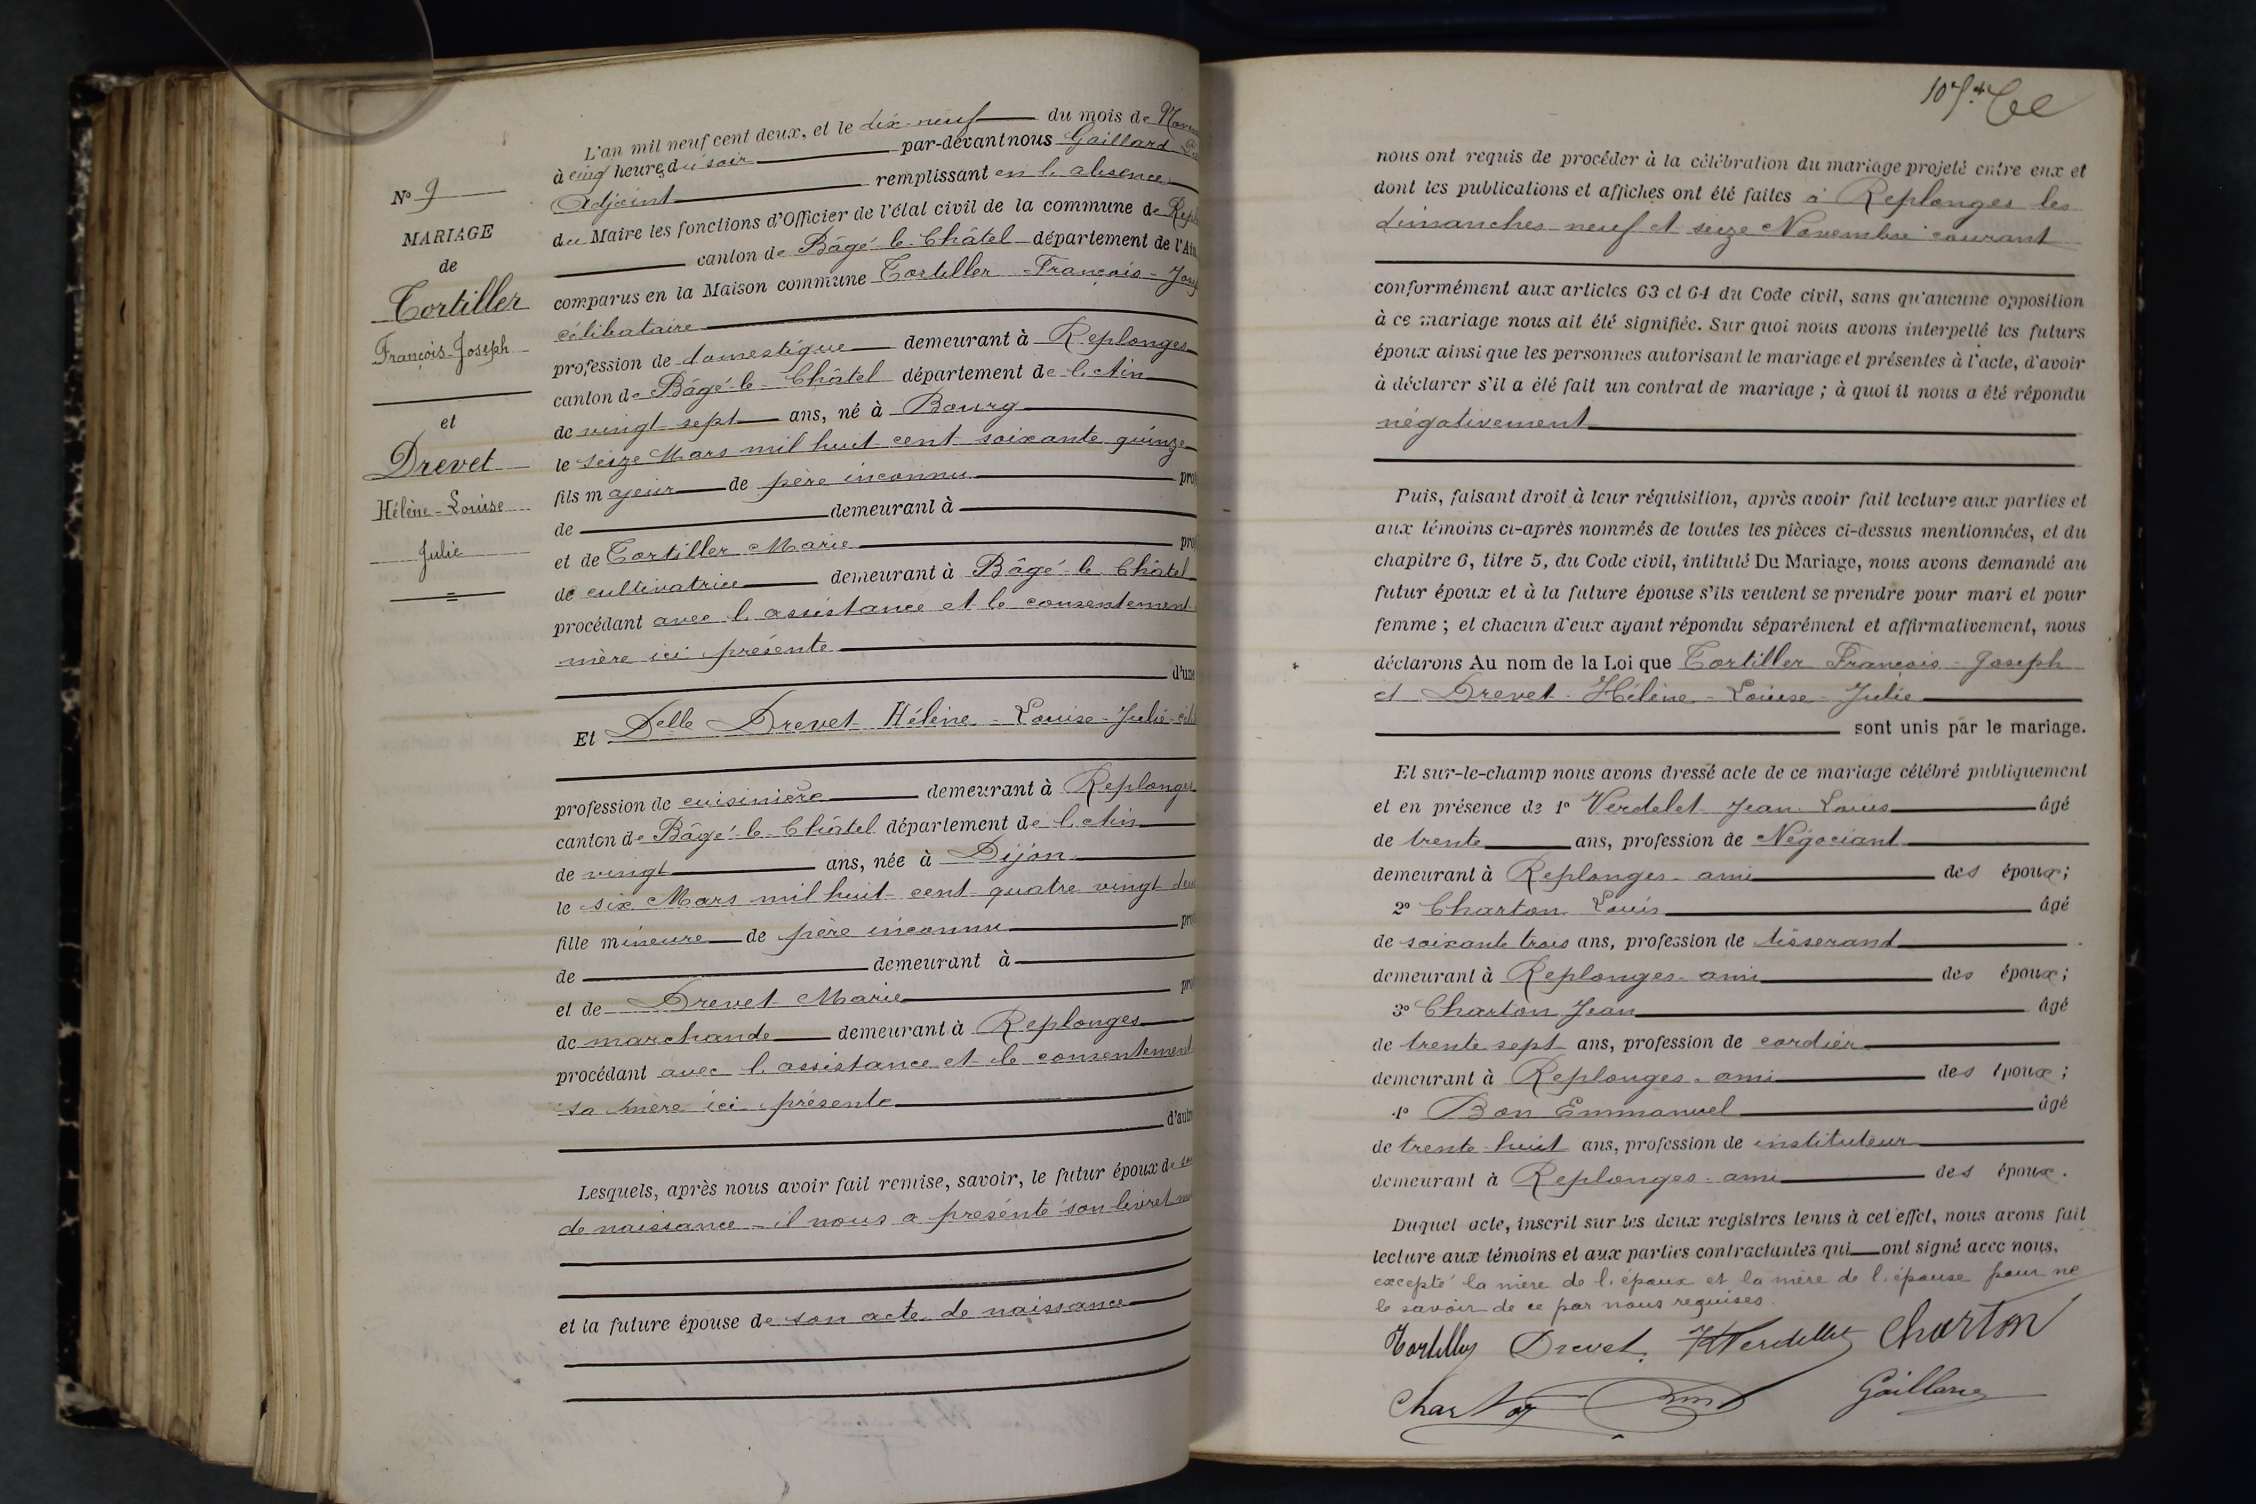 L'an mil neuf cent deux, et le dix-neuf du mois de
à cinq heures du soir par-devant nous Gaillard
Adjoint remplissant en l'absence
du Maire les fonctions d'Officier de l'état civil de la commune de
canton de Bâgé-le-Châtel département de l'Ain
comparus en la Maison commune Tortiller François-
célibataire
profession de domestique demeurant à Replonges
canton de Bâgé-le-Châtel département de l'Ain
de vingt sept ans, né à Bourg
le seize Mars mil huit cent soixante quinze
fils majeur de père inconnu
de demeurant à
et de Tortiller Marie
de cultivatrice demeurant à Bâgé-le-Châtel
procédant avec l'assistance et le consentement
mère ici présente
d'une
Et Delle Drevet Hélène-Louise-Julie
profession de cuisinière demeurant à Replonges
canton de Bâgé-le-Châtel département de l'Ain
de vingt ans, née à Dijon
le six Mars mil huit cent quatre vingt deux
fille mineure de père inconnu
de demeurant à
et de Drevet Marie
de marchande demeurant à Replonges
procédant avec l'assistance et le consentement
sa mère ici présente
Lesquels, après nous avoir fait remise, savoir, le futur époux de
de naissance - il nous a présenté son livret
et la future épouse de son acte de naissance
N° 9
MARIAGE
de
Tortiller
François-Joseph
et
Drevet
Hélène-Louise
Julie
nous ont requis de procéder à la célébration du mariage projeté entre eux et
dont les publications et affiches ont été faites à Replonges les
dimanches neuf et seize Novembre courant
conformément aux articles 63 et 64 du Code civil, sans qu'aucune opposition
à ce mariage nous ait été signifiée. Sur quoi nous avons interpellé les futurs
époux ainsi que les personnes autorisant le mariage et présentes à l'acte, d'avoir
à déclarer s'il a été fait un contrat de mariage ; à quoi il nous a été répondu
négativement
Puis, faisant droit à leur réquisition, après avoir fait lecture aux parties et
aux témoins ci-après nommés de toutes les pièces ci-dessus mentionnées, et du
chapitre 6, titre 5, du Code civil, intitulé Du Mariage, nous avons demandé au
futur époux et à la future épouse s'ils veulent se prendre pour mari et pour
femme ; et chacun d'eux ayant répondu séparément et affirmativement, nous
déclarons Au nom de la Loi que Tortiller François-Joseph
et Drevet Hélène-Louise-Julie
sont unis par le mariage.
Et sur-le-champ nous avons dressé acte de ce mariage célébré publiquement
et en présence de 1° Verdelet Jean-Louis âgé
de trente ans, profession de Négociant
demeurant à Replonges - ami des époux ;
2° Charton Louis âgé
de soixante trois ans, profession de tisserand
demeurant à Replonges - ami des époux ;
3° Charton Jean âgé
de trente sept ans, profession de cordier
demeurant à Replonges - ami des époux ;
4° Bon Emmanuel âgé
de trente huit ans, profession de instituteur
demeurant à Replonges - ami des époux.
Duquel acte, inscrit sur les deux registres tenus à cet effet, nous avons fait
lecture aux témoins et aux parties contractantes qui ont signé avec nous.
excepté la mère de l'époux et la mère de l'épouse pour ne
le savoir de ce par nous requises.
Tortiller Drevet Verdelet Charton
Charton Bon Gaillard